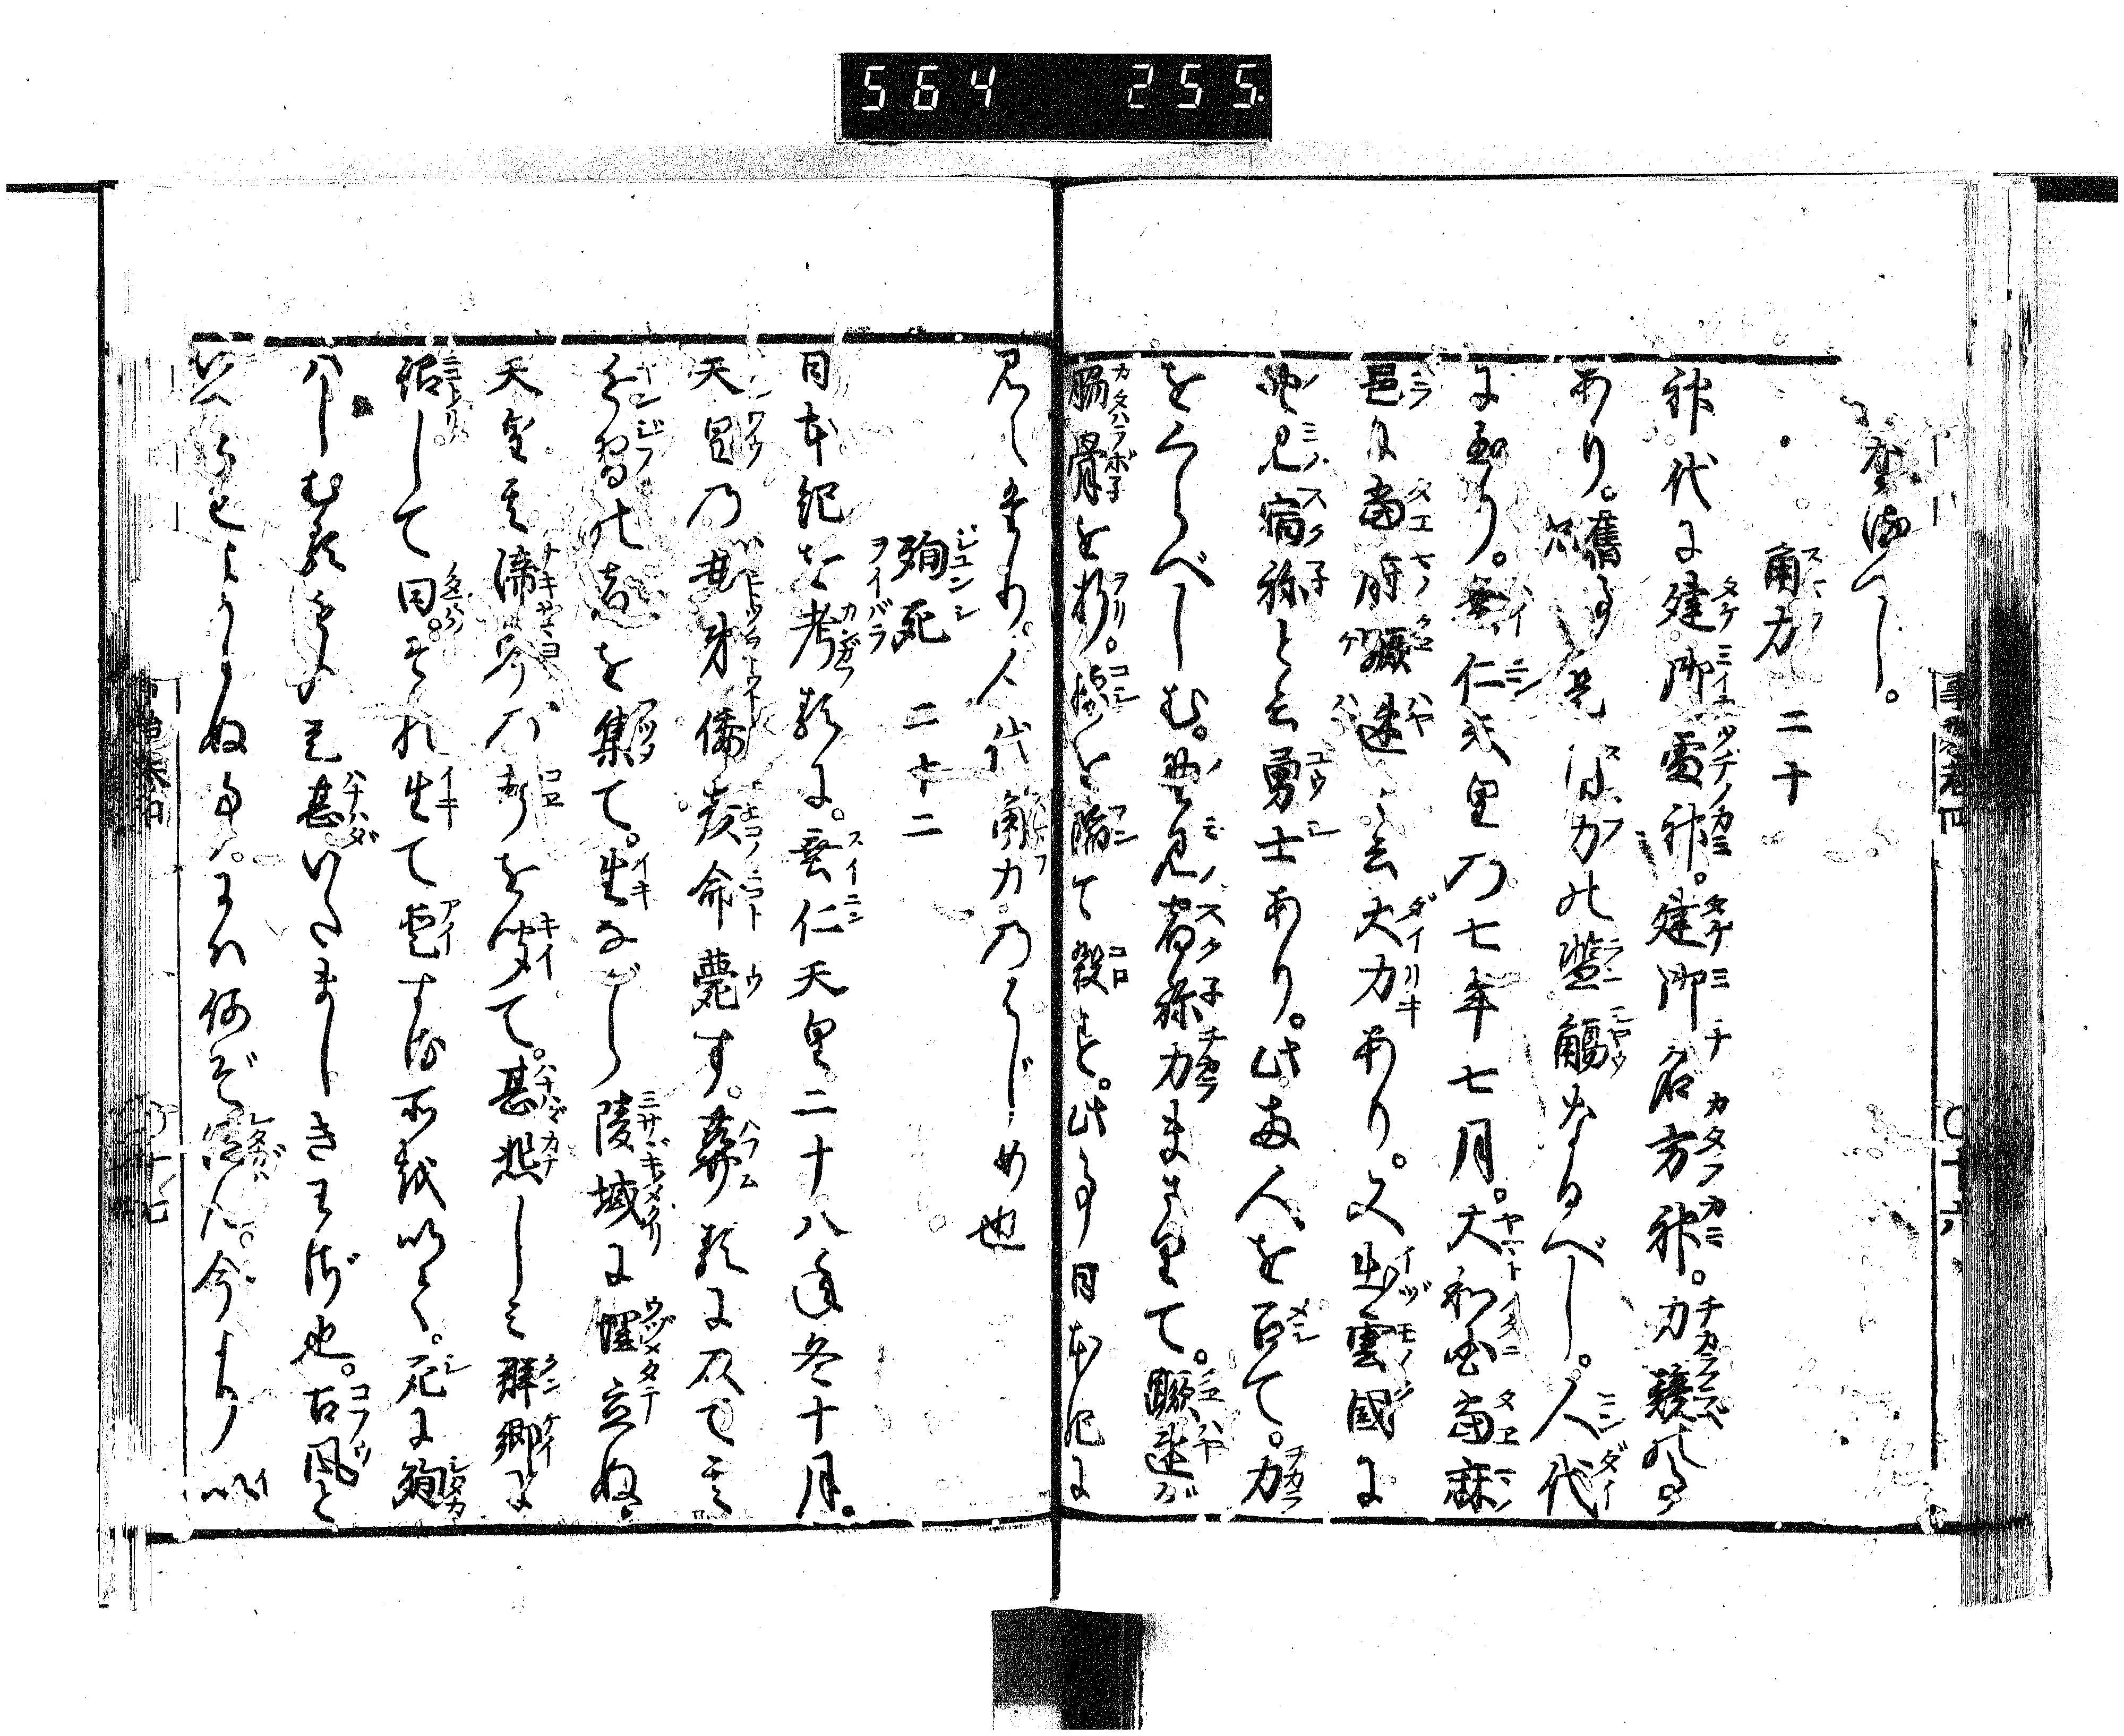 564 255
べし。
角力 二十
神代に建御雷神。建御名方神。力競の事
あり。舊事是角力の濫觴なるべし。人代
に至り。垂仁天皇の七年七月。大和国當麻
邑に當麻蹶速と云大力あり。又出雲國に
野見宿祢と云勇士あり。此両人を召て。力
をくらべしむ。野見宿祢力まさりて。蹶速が
脇骨を折。腰を蹈て殺す。此事日本紀に
見えたり。人代角力のはじめ也
殉死 二十二
日本紀を考るに。垂仁天皇二十八年冬十月。
天皇の母弟倭彦命薨ず。葬るに及で其
近習の者を集て。生ながら陵域に埋立ぬ。
天皇其啼吟乃声を聞て。甚悲しミ群卿に
詔して曰。それ生て愛する所以て。死に殉
ハしむるハ是甚いたましきわざ也。古風と
いへどもよからぬ事。は何ぞ従ん。今より以